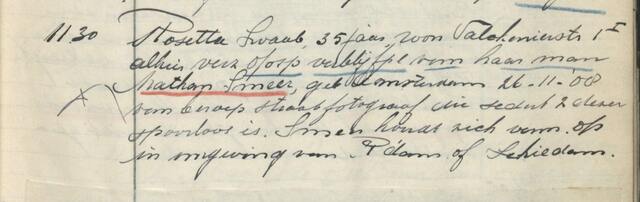 11.30 Rosetta Swaab, 35 jaar, won Valckenierstr 1 I
alhier verz opsp verblijfpl van haar man
Nathan Smeer, geb Amsterdam 26-11-08
van beroep straatfotograaf die sedert 2 dezer
spoorloos is. Smeer houdt zich verm. op
in omgeving van R'dam of Schiedam.